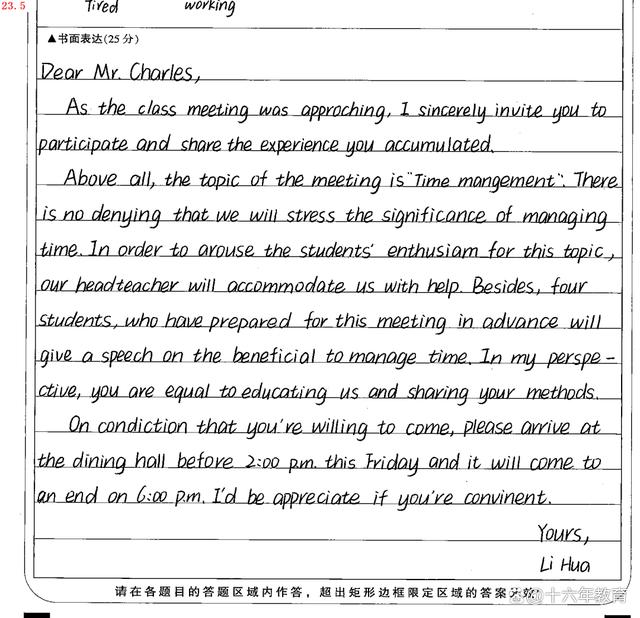 23.5
Tired working
▲书面表达(25分)
Dear Mr. Charles,
As the class meeting was approching, I sincerely invite you to
participate and share the experience you accumulated.
Above all, the topic of the meeting is "Time mangement". There
is no denying that we will stress the significance of managing
time. In order to arouse the students' enthusiam for this topic,
our headteacher will accommodate us with help. Besides, four
students, who have prepared for this meeting in advance will
give a speech on the beneficial to manage time. In my perspe-
ctive, you are equal to educating us and sharing your methods.
On condiction that you're willing to come, please arrive at
the dining hall before 2:00 p.m. this Friday and it will come to
an end on 6:00 p.m. I'd be appreciate if you're convinent.
Yours,
Li Hua
请在各题目的答题区域内作答，超出矩形边框限定区域的答案无效
十六年教育